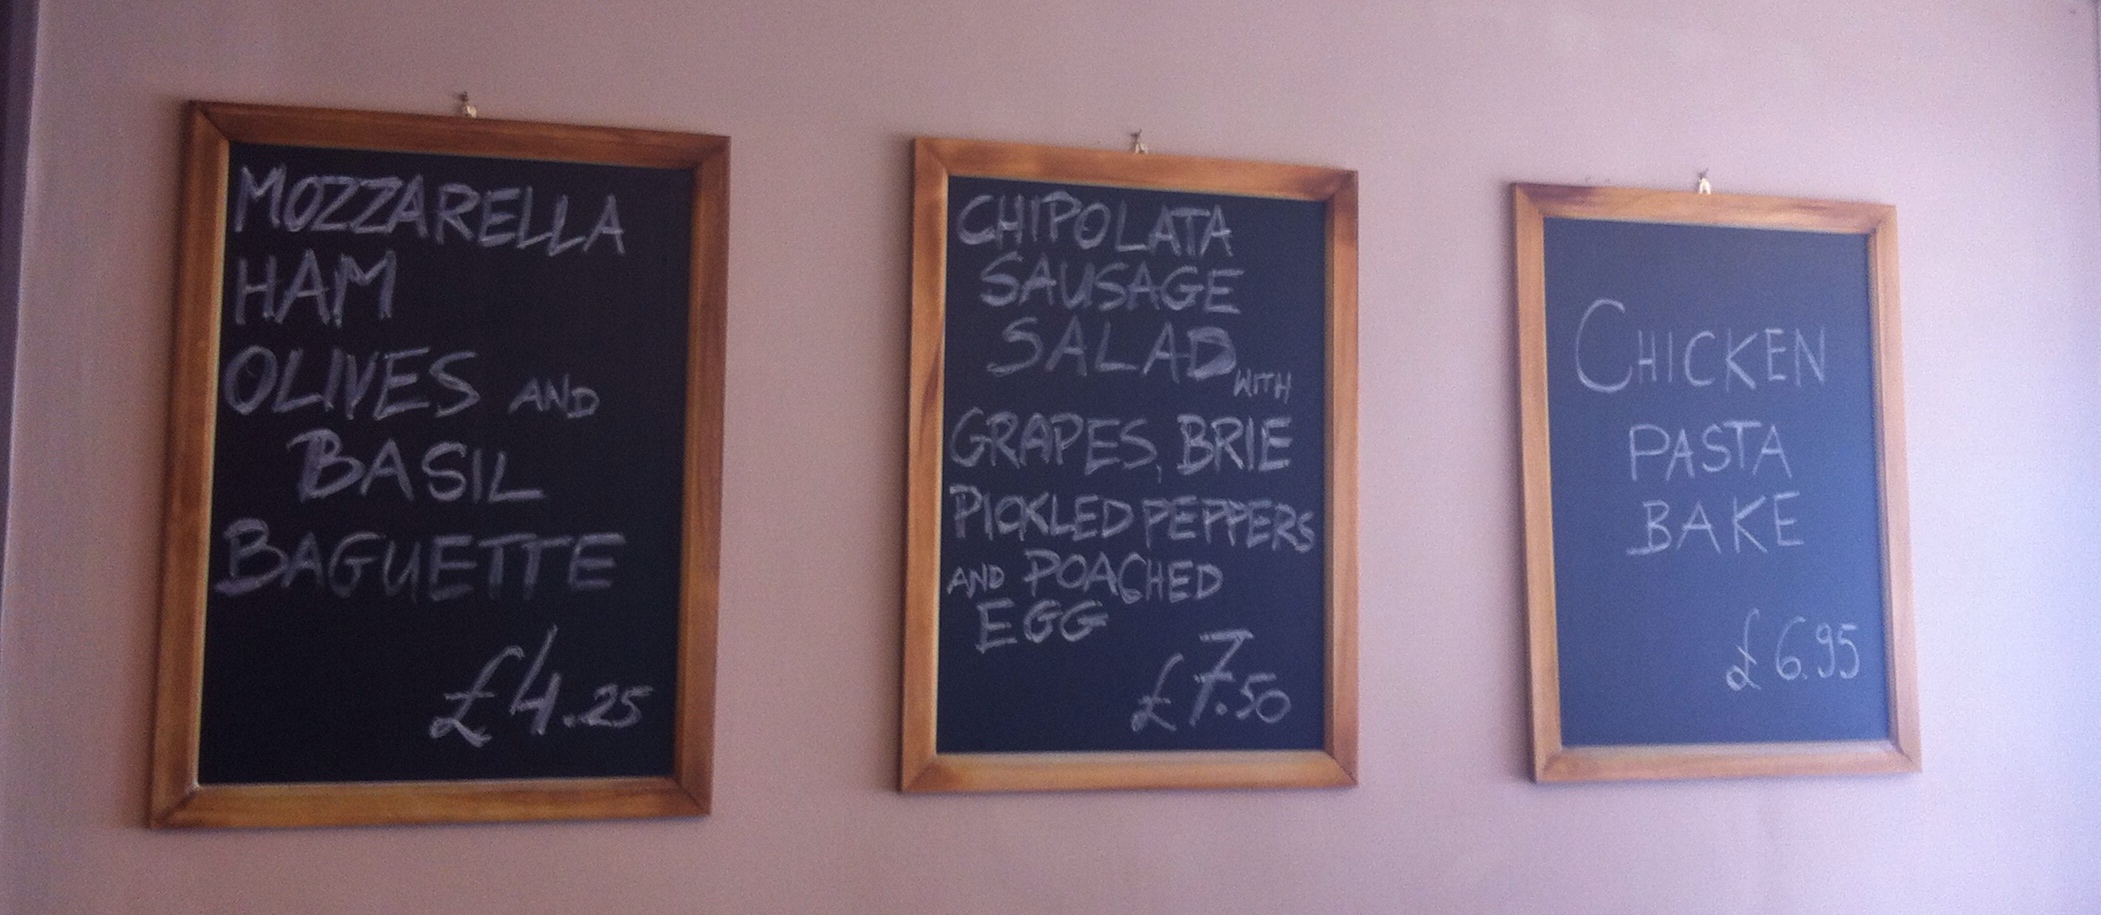 MOZZARELLA
HAM
OLIVES AND
BASIL
BAGUETTE
£4.25
CHIPOLATA
SAUSAGE
SALAD WITH
GRAPES, BRIE
PICKLED PEPPERS
AND POACHED
EGG
£7.50
CHICKEN
PASTA
BAKE
£6.95